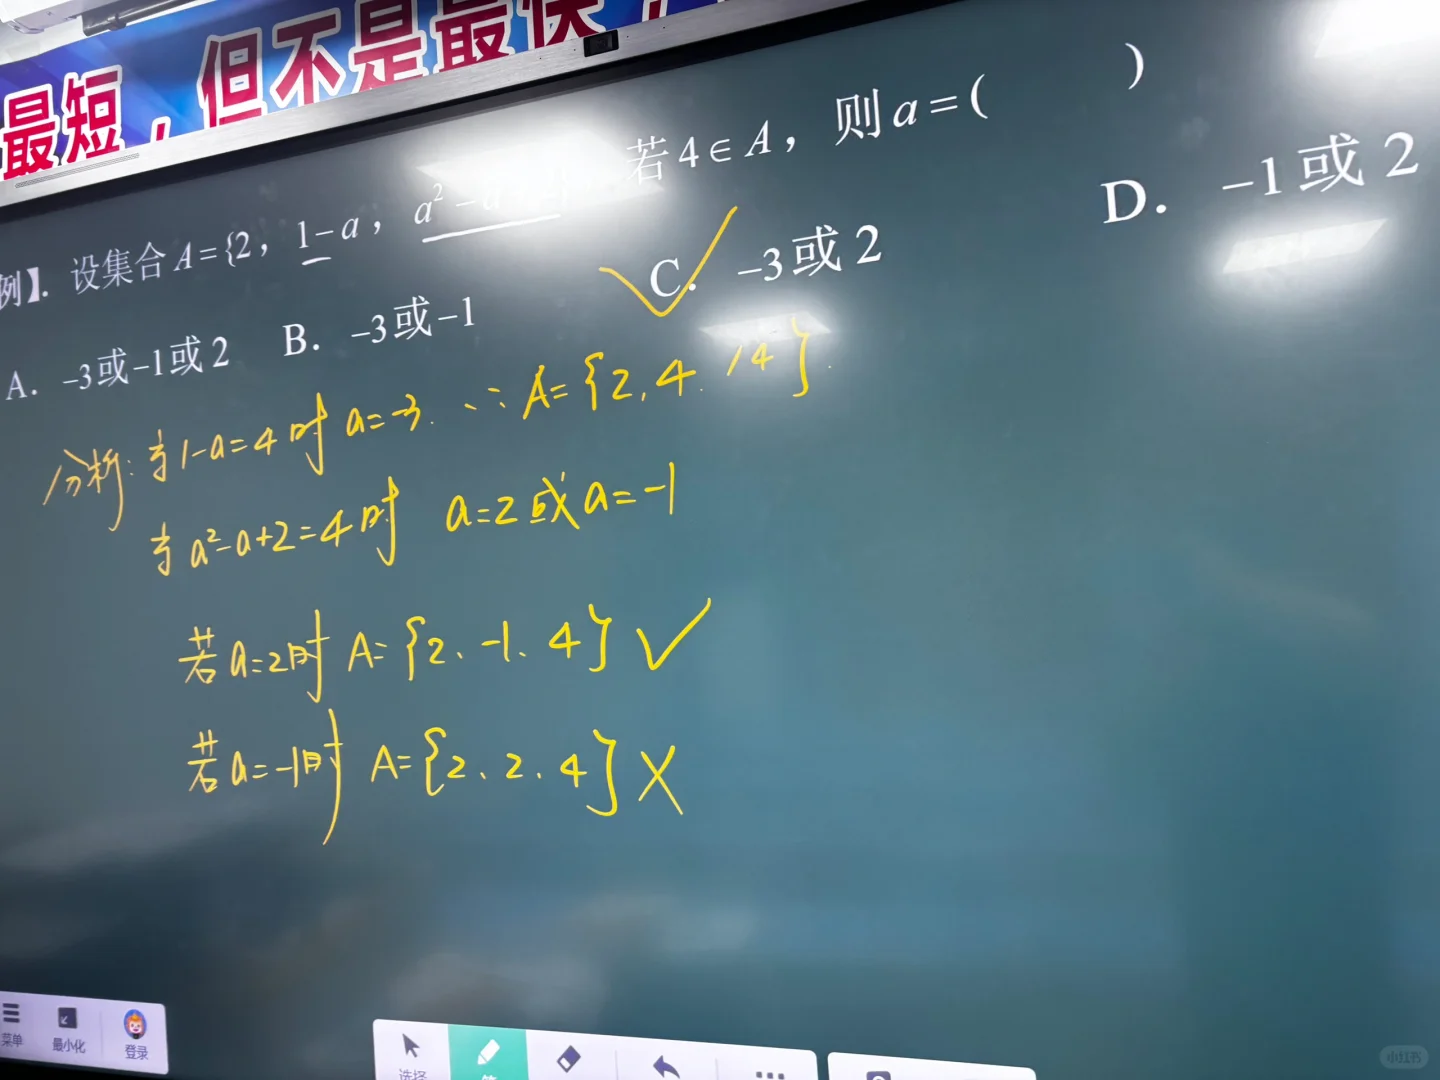 最短，但不是最快，
例】. 设集合 A={2，1-a，a²-a 若 4∈A，则 a=(        )
A. -3或-1或2  B. -3或-1  C. -3或2  D. -1或2
分析: 当1-a=4时 a=-3. ∴A={2,4.14}.
当a²-a+2=4时 a=2或a=-1
若a=2时 A={2、-1、4}✓
若a=-1时 A={2、2、4}X
菜单 最小化 登录 选择
小红书